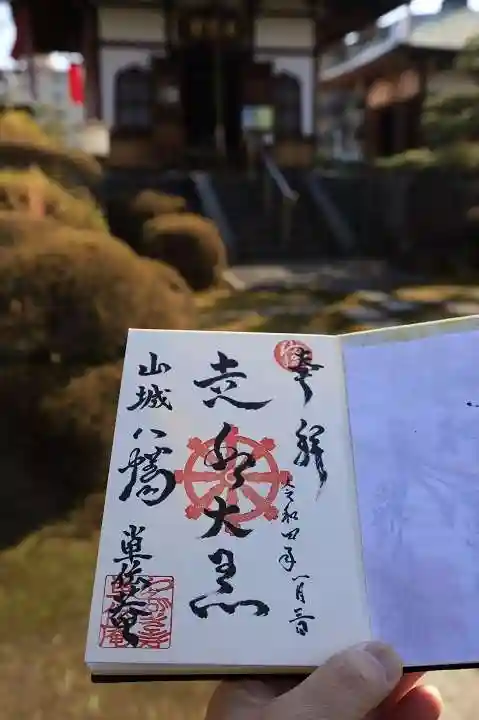 奉拝
令和四年一月三日
走り大黒
山城八幡
単伝庵